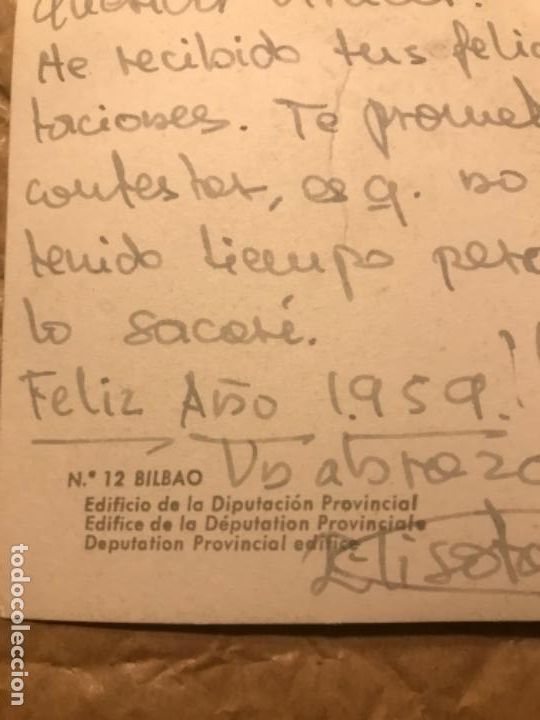 He recibido tus felici
taciones. Te promet
contestar, es q. no
tenido tiempo pero
lo sacaré.
Feliz Año 1.959.!
Un abrazo
N.º 12 BILBAO
Edificio de la Diputación Provincial
Edifice de la Députation Provinciale
Deputation Provincial edifice
todocoleccion